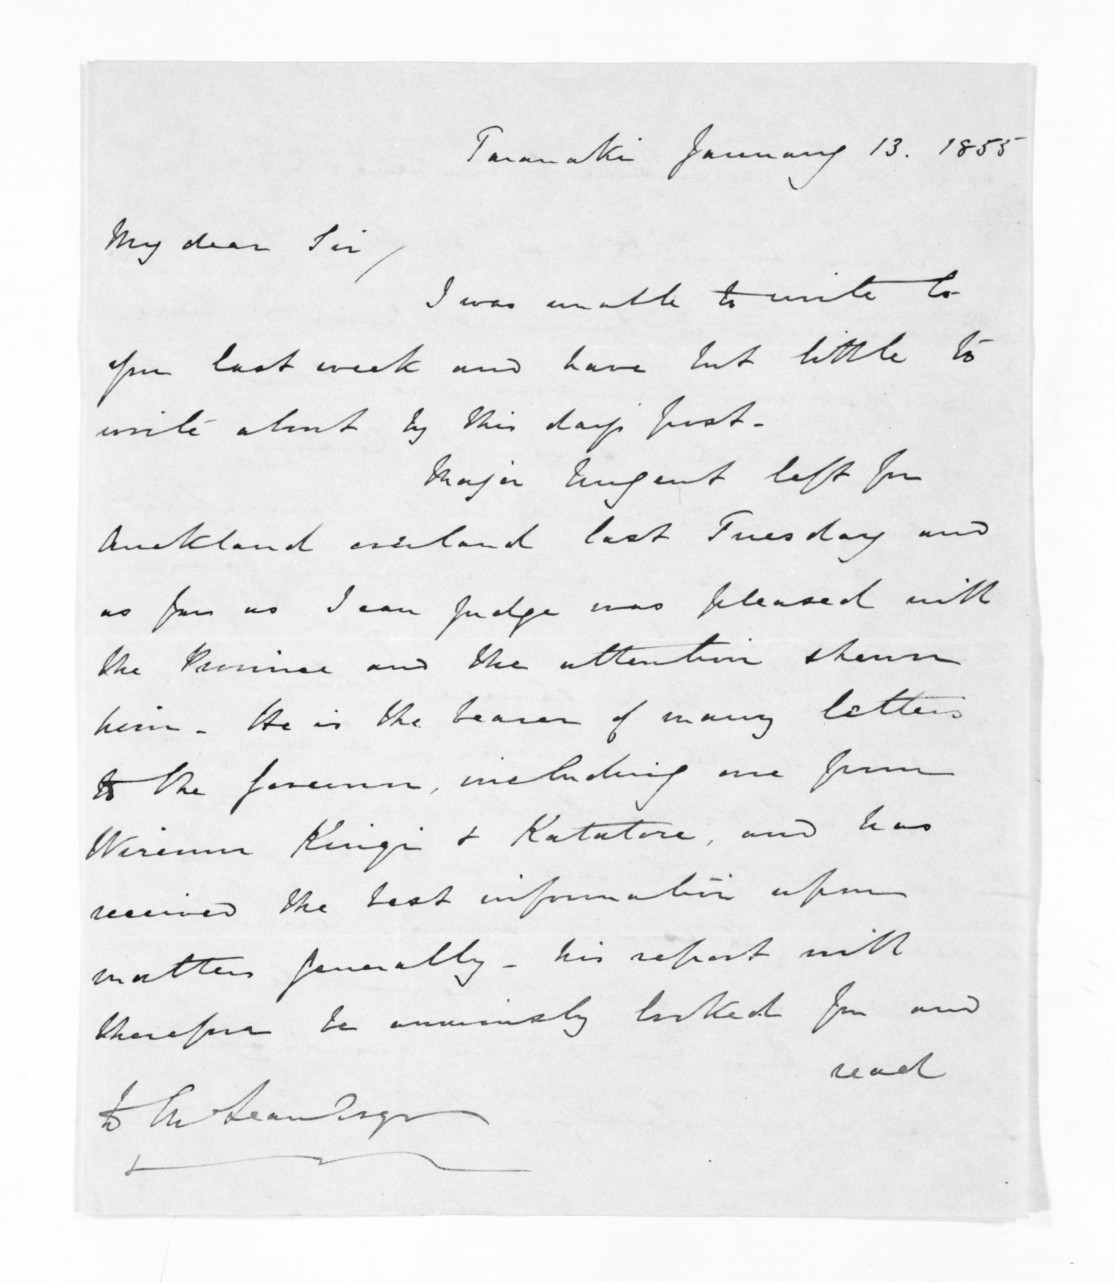 Taranaki January 13. 1855
My dear Sir/
I was unable to write to
you last week and have but little to
write about by this day's post -
Major Nugent left for
Auckland overland last Tuesday and
as far as I can judge was pleased with
the Province and the attention shewn
him - He is the bearer of many letters
to the Governor, including one from
Wiremu Kingi & Katatore, and has
received the best information upon
matters generally - his report will
therefore be anxiously looked for and
read
D McLean Esqr